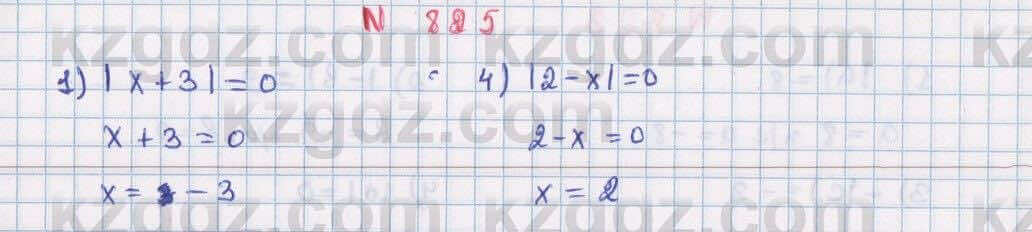 N 885
1) |x+3|=0
x+3=0
x=-3
4) |2-x|=0
2-x=0
x=2
kzgdz.com
kzgdz.com
kzgdz.com
kzgdz.com
kzgdz.com